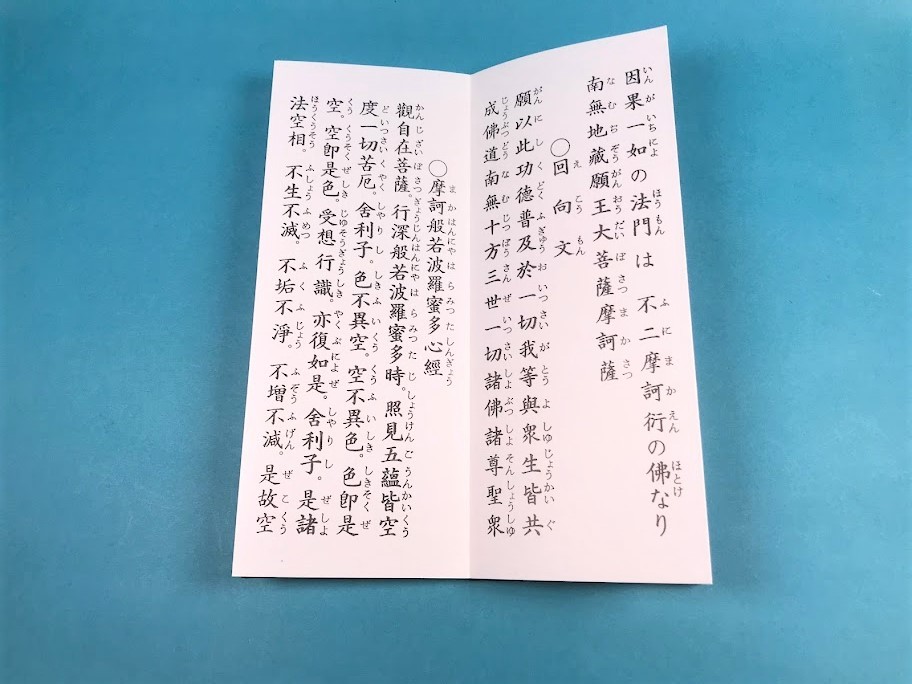 因果一如の法門は　不二摩訶衍の佛なり
南無地藏願王大菩薩摩訶薩
〇回向文
願以此功德普及於一切我等與衆生皆共
成佛道南無十方三世一切諸佛諸尊聖衆
〇摩訶般若波羅蜜多心經
觀自在菩薩。行深般若波羅蜜多時。照見五蘊皆空
度一切苦厄。舍利子。色不異空。空不異色。色卽是
空。空卽是色。受想行識。亦復如是。舍利子。是諸
法空相。不生不滅。不垢不淨。不增不減。是故空